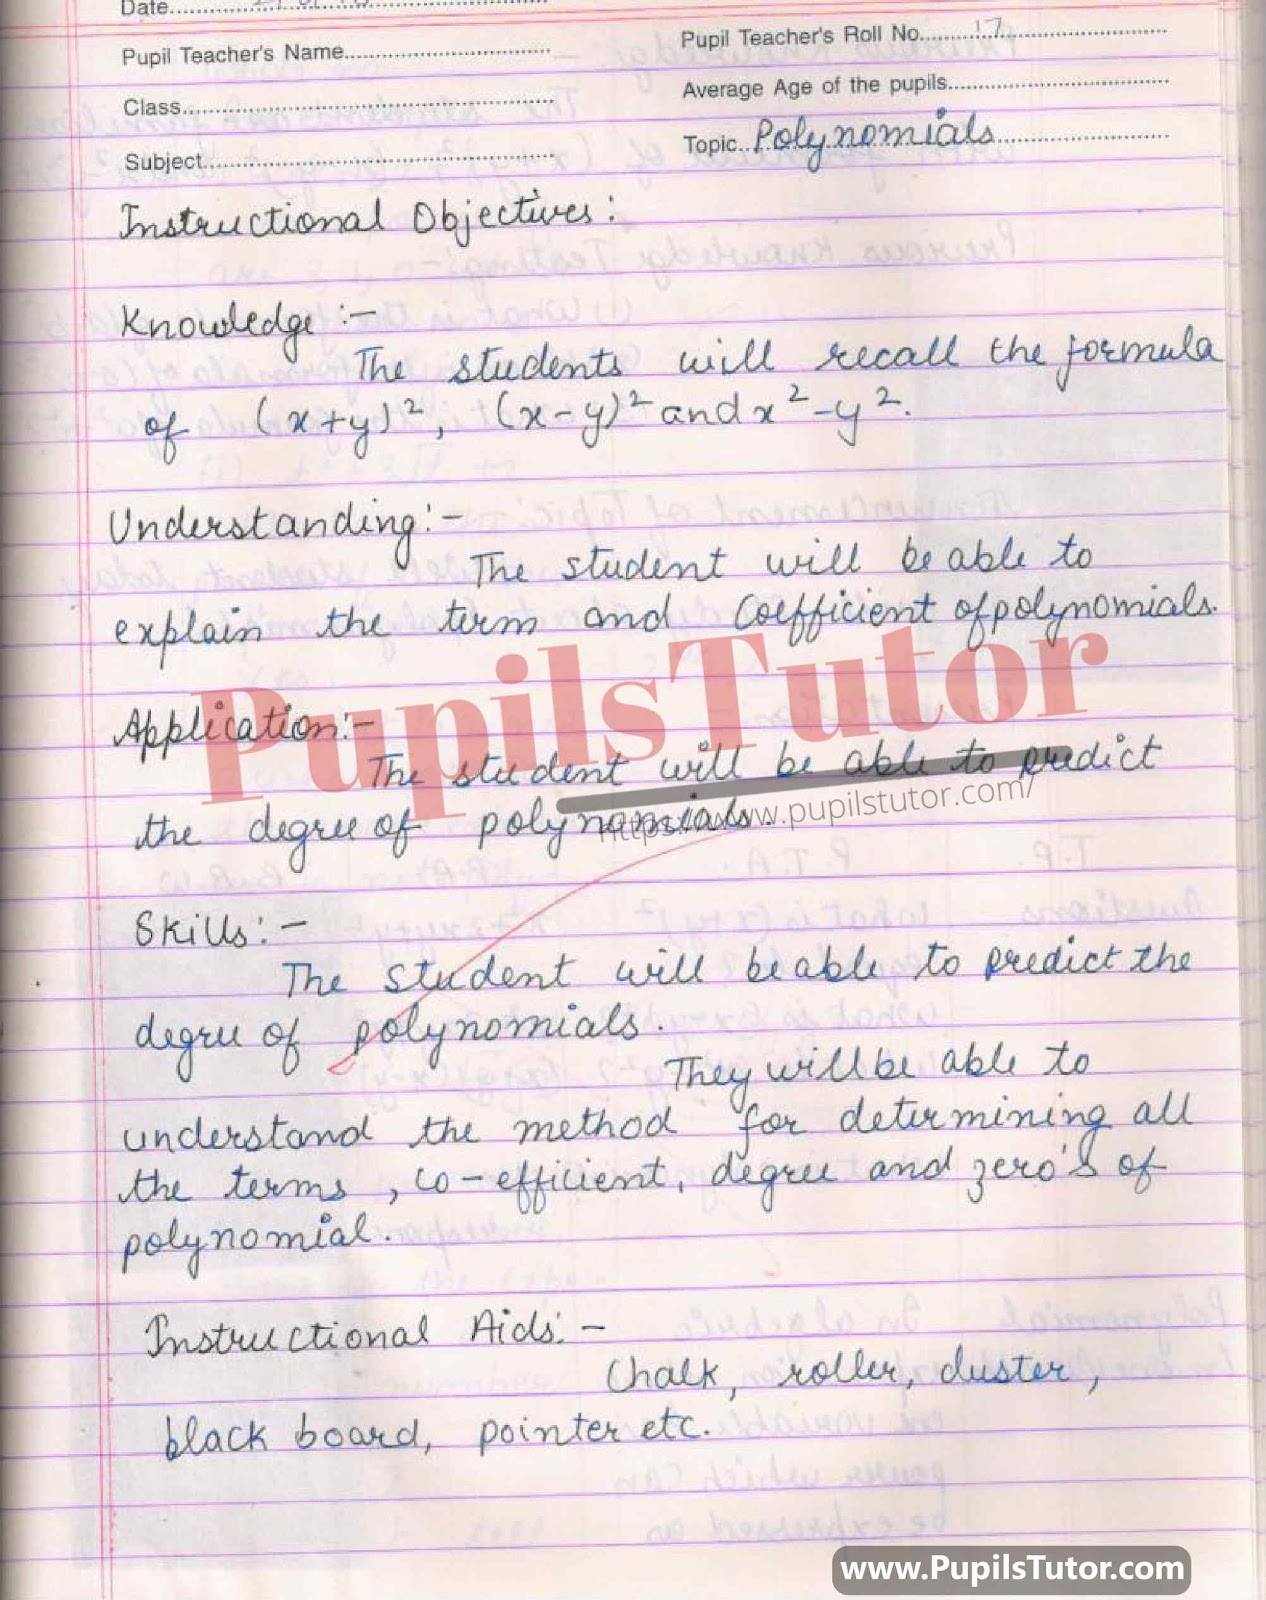 Date
Pupil Teacher's Name
Pupil Teacher's Roll No. 17
Class
Average Age of the pupils
Subject
Topic Polynomials
Instructional Objectives:
Knowledge:-
The students will recall the formula
of (x+y)², (x-y)² and x²-y².
Understanding:-
The student will be able to
explain the term and Coefficient of polynomials.
Application:-
The student will be able to predict
the degree of polynomials.
Skills:-
The student will be able to predict the
degree of polynomials.
They will be able to
understand the method for determining all
the terms, co-efficient, degree and zero's of
polynomial.
Instructional Aids:-
Chalk, roller, duster,
black board, pointer etc.
PupilsTutor
https://www.pupilstutor.com/
www.PupilsTutor.com